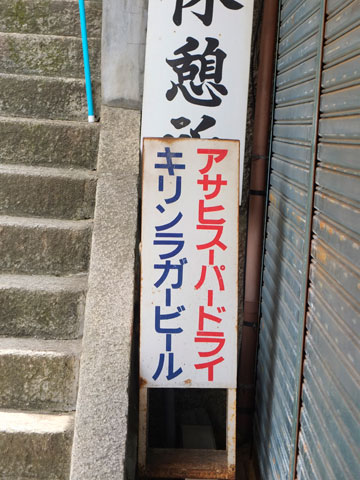 休憩所
アサヒスーパードライ
キリンラガービール